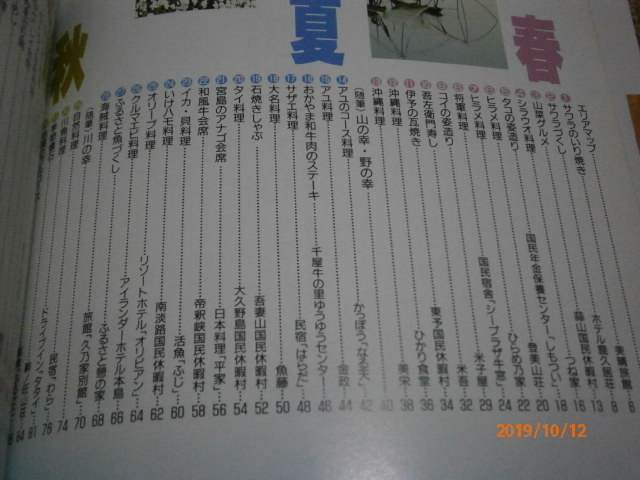 春
エリアマップ
❶サワラのいり焼き……美晴旅館…6
❷サワラづくし……ホテル豊乃居荘…9
❸山菜グルメ……蒜山国民休暇村…13
❹シラウオ料理……つね家…16
❺タコの姿造り……国民年金保養センター「しもつい」…18
❻ヒラメ料理……登美山荘…20
❼ヒラメ料理……ひらの乃家…22
❽将軍料理……国民宿舎「シーブラザ千里」…24
❾コイの姿造り……米子屋…29
❿吾左衛門寿し……米吾…32
⓫伊予の瓦焼き……東予国民休暇村…34
⓬沖縄料理……ひかり食堂…36
⓭沖縄料理……美栄…38
〈随筆〉山の幸・野の幸…40
夏
⓮アユのコース料理……かっぽう「なるを」…42
⓯アユ料理……金政…44
⓰おかやま和牛肉のステーキ……千屋牛の里ゆうゆうセンター…46
⓱サザエ料理……民宿「はらだ」…48
⓲大名料理……魚藤…50
⓳石焼きしゃぶ……吾妻山国民休暇村…52
⓴タイ料理……大久野島国民休暇村…54
㉑宮島のアナゴ会席……日本料理「平家」…56
㉒和風牛会席……帝釈峡国民休暇村…58
㉓イカ・貝料理……活魚「ふじ」…60
㉔いけハモ料理……南淡路国民休暇村…62
㉕オリーブ料理……リゾートホテル「オリビアン」…64
㉖クルマエビ料理……アイランダーホテル本島…66
㉗ふるさと魚づくし……ふるさと憩の家…68
㉘海賊料理……旅館「久乃家別館」…70
〈随筆〉川の幸…74
秋
自然料理……民宿「わら」…76
ドライブイン「タタイ」…81
2019/10/12